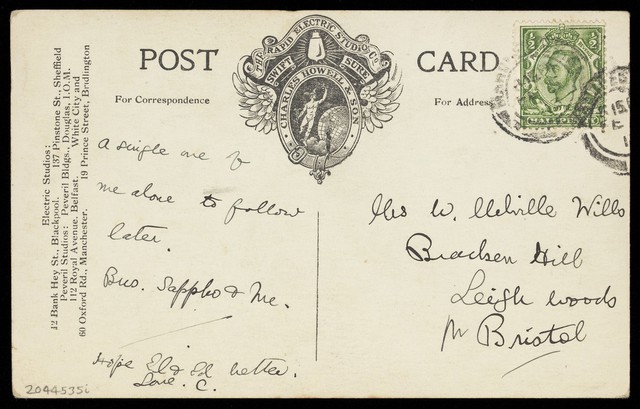 POST CARD
THE RAPID ELECTRIC STUDIO Co
SWIFT SURE
CHARLES HOWELL & SON
For Correspondence
For Address
Electric Studios:
12 Bank Hey St., Blackpool. 137 Pinstone St., Sheffield
Peveril Studios: Peveril Bldgs., Douglas, I.O.M.
112 Royal Avenue, Belfast. White City and
60 Oxford Rd., Manchester. 19 Prince Street, Bridlington
A single one of
me alone to follow
later.
Bus. Sappho & Me.
Hope El & Ed better.
Love. C.
Mrs W. Melville Wills
Bracken Hill
Leigh Woods
Nr Bristol
1/2 1/2
HALFPENNY
2044535i